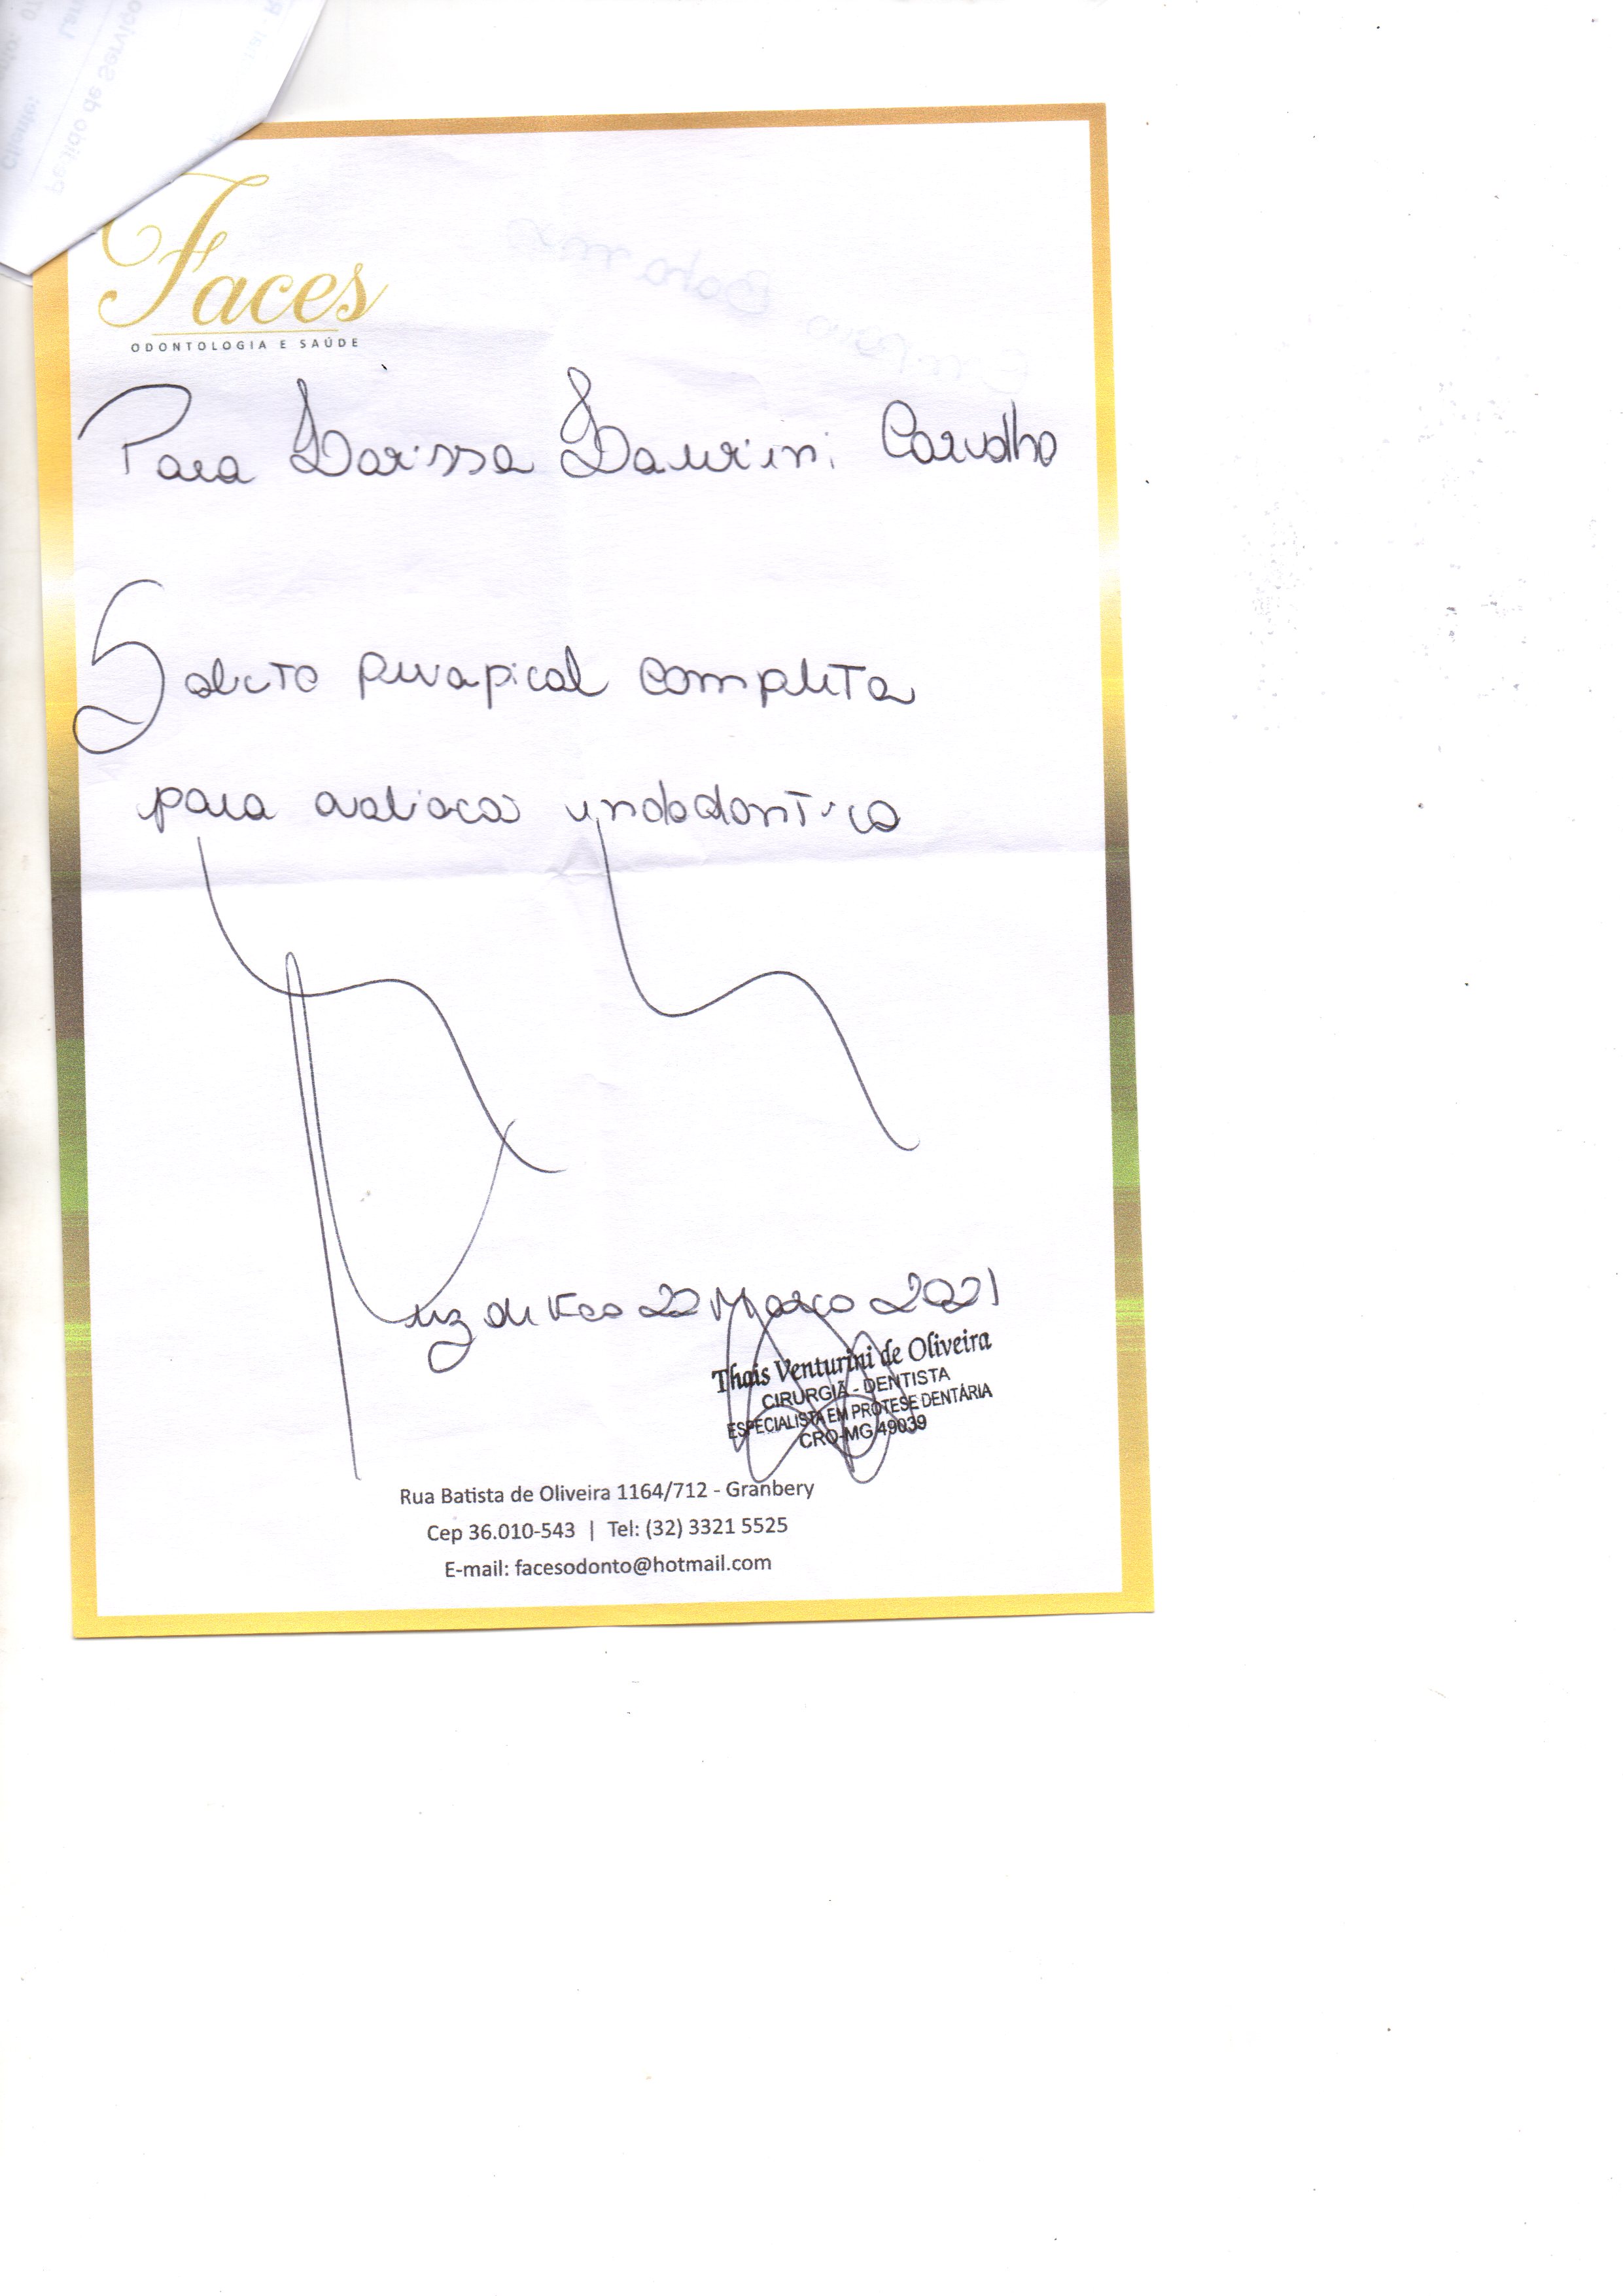 Faces
ODONTOLOGIA E SAÚDE
Para Larissa Laurini Carvalho
Solicito periapical completa
para avaliacão endodontica
Juiz de Fora 22 Março 2021
Thais Venturini de Oliveira
CIRURGIÃ - DENTISTA
ESPECIALISTA EM PRÓTESE DENTÁRIA
CRO-MG 49039
Rua Batista de Oliveira 1164/712 - Granbery
Cep 36.010-543 | Tel: (32) 3321 5525
E-mail: facesodonto@hotmail.com
Pedido de Serviço
Cliente: